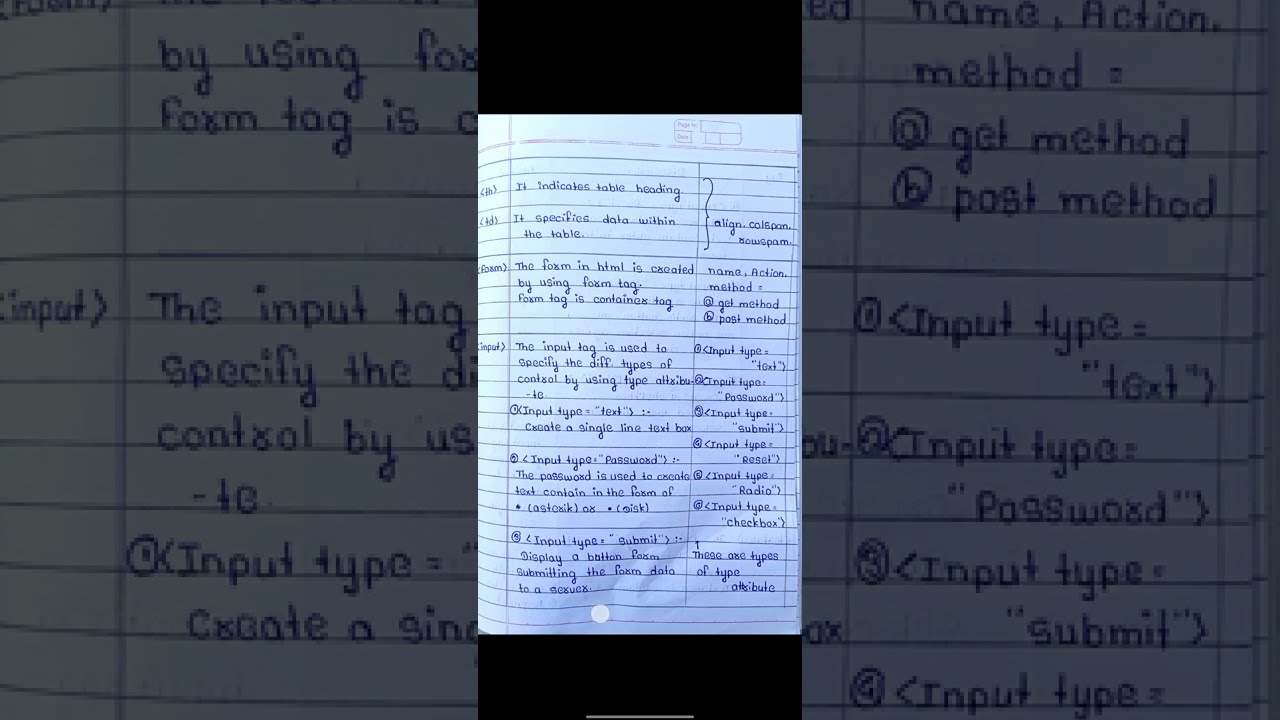 Page No.
Date
<th> It indicates table heading.
<td> It specifies data within
the table.
align, colspan,
rowspam.
<form> The form in html is created
by using form tag.
form tag is container tag
name, Action.
method =
ⓐ get method
ⓑ post method
<input> The input tag is used to
specify the diff. types of
control by using type attribu-
-te.
① <Input type = "text"> :-
Create a single line text box
② <Input type="Password"> :-
The password is used to create
text contain in the form of
• (asterik) or • (Disk)
③ <Input type = "submit"> :-
Display a button form
submitting the form data
to a server.
① <Input type =
"text">
② <Input type=
"Password">
③ <Input type =
"submit">
④ <Input type =
"Reset">
⑤ <Input type =
"Radio">
⑥ <Input type =
"checkbox">
↑
These are types
of type
attribute